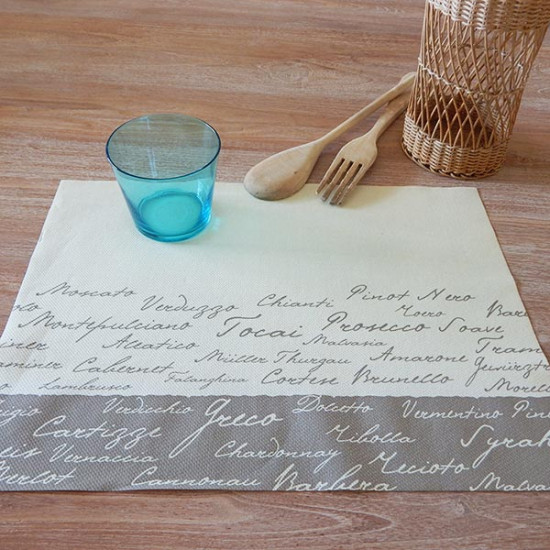 Moscato Verduzzo Chianti Pinot Nero
Montepulciano Tocai Prosecco Soave
Zoero
Aleatico Malvasia
Müller Thurgau Amarone
Cabernet
Lambrusco Falanghina Cortese Brunello
Verdicchio Greco Dolcetto Vermentino Pino
Cartizze Ribolla Syrah
Vernaccia Chardonnay Recioto
Merlot Cannonau Barbera Malva